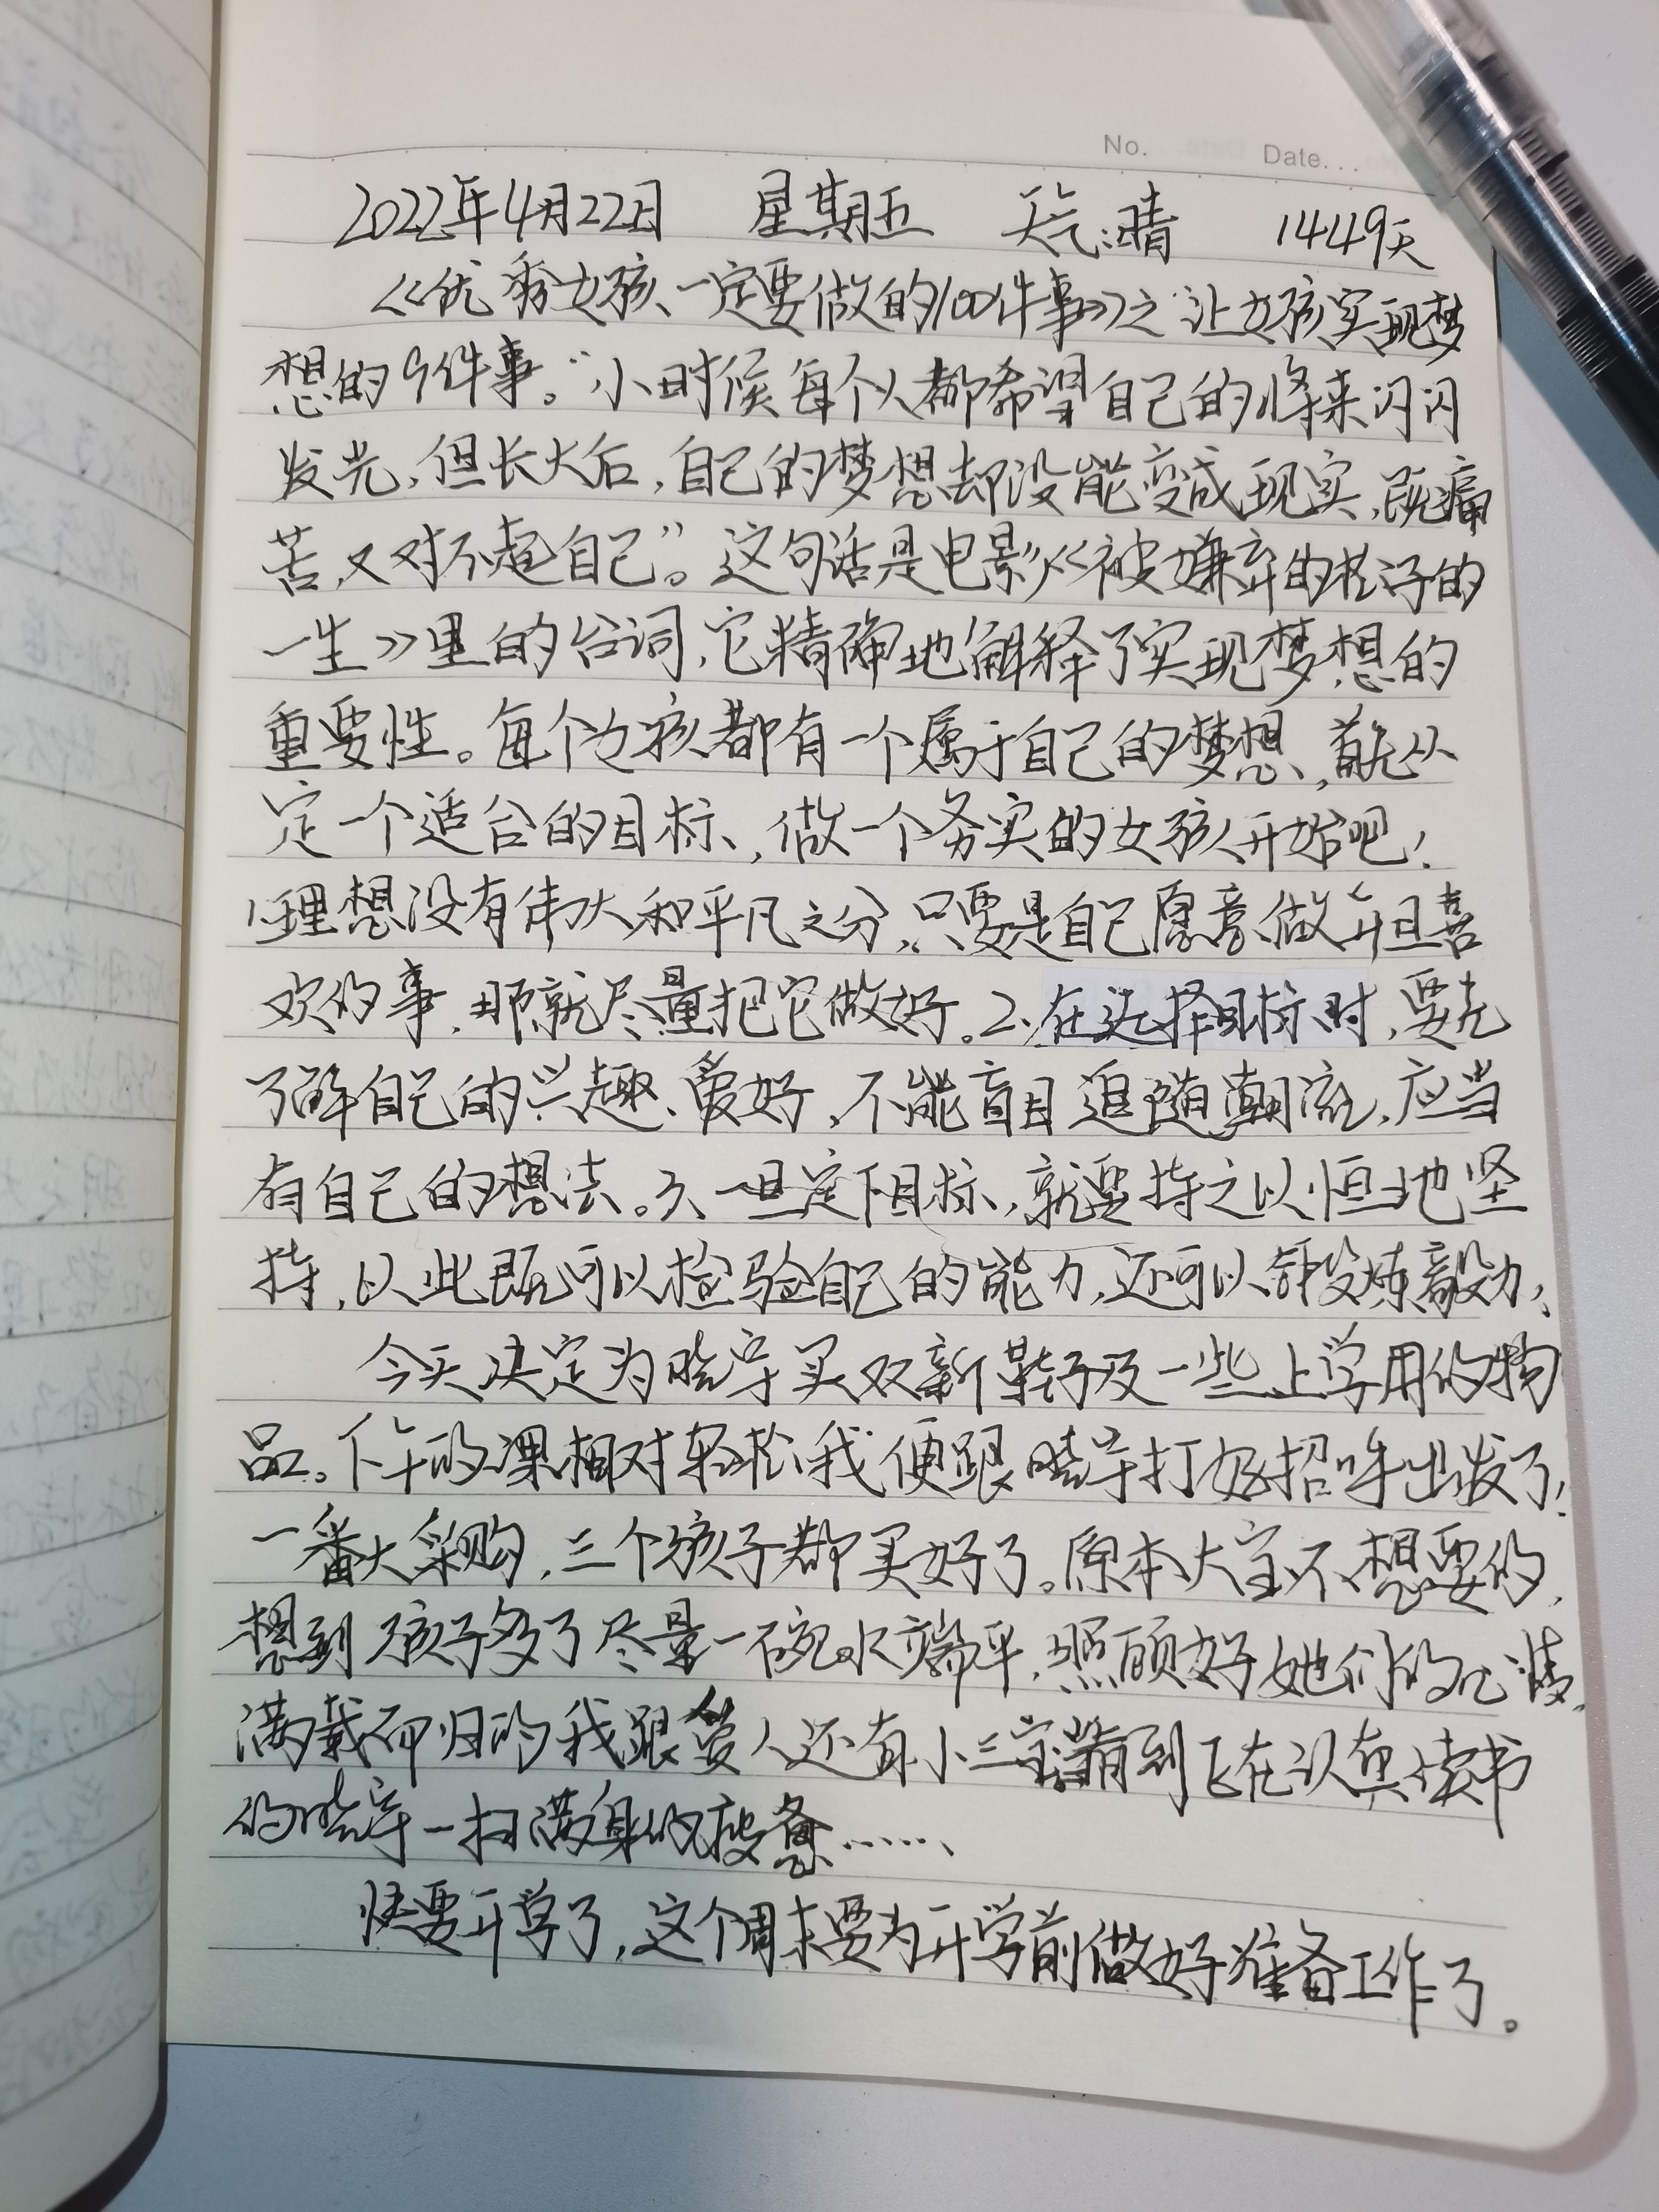 No. Date...
2022年4月22日 星期五 天气:晴 1449天
《优秀女孩一定要做的100件事》之让女孩实现梦
想的9件事。“小时候每个人都希望自己的将来闪闪
发光,但长大后,自己的梦想却没能变成现实,既痛
苦,又对不起自己”。这句话是电影《被嫌弃的松子的
一生》里的台词,它精确地解释了实现梦想的
重要性。每个女孩都有一个属于自己的梦想,首先从
定一个适合的目标,做一个务实的女孩开始吧!
1、理想没有伟大和平凡之分,只要是自己愿意做并且喜
欢的事,那就尽量把它做好。2、在选择目标时,要先
了解自己的兴趣、爱好,不能盲目追随潮流,应当
有自己的想法。3、一旦定下目标,就要持之以恒地坚
持,以此既可以检验自己的能力,还可以锻炼毅力;
今天决定为晓宇买双新鞋子及一些上学用的物
品。下午的课相对轻松,我便跟晓宇打好招呼出发了!
一番大采购,三个孩子都买好了。原本大宝不想要的,
想到孩子多了尽量一碗水端平,照顾好她们的心情,
满载而归的我跟爱人还有小三宝看到正在认真读书
的晓宇一扫满身的疲惫……
快要开学了,这个周末要为开学前做好准备工作了。